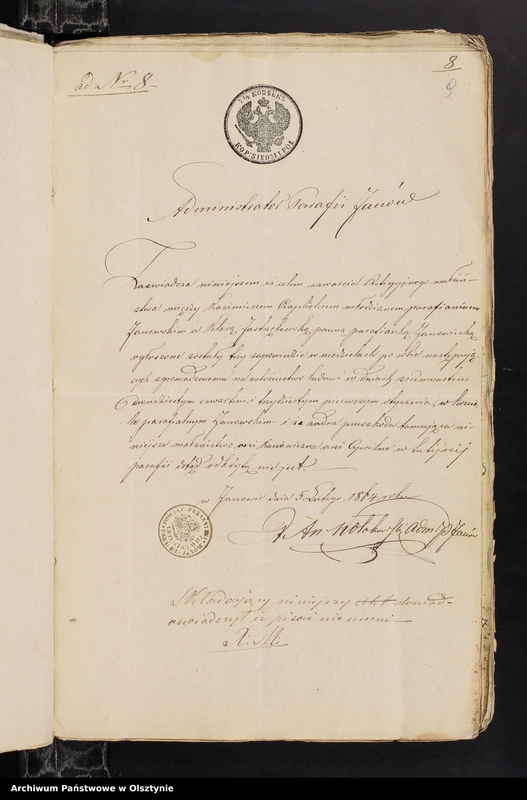 8
9
ad Nr 8
7½ КОПѢЕКЪ
KOP. SIEDM I PÓŁ
Administrator Parafii Janów
Zaświadcza niniejszem iż celem zawarcia Religijnego małżeń-
stwa między Kazimierzem Czaplickim młodzianem parafianinem
Janowskim a Klarą Jastrzębowską panną parafianką Janowską
ogłoszone zostały trzy zapowiedzie w niedzielach po sobie następują-
cych zgromadzonemu na nabożeństwo ludowi w dniach siedmnastem
dwudziestym czwartem i trzydziestym pierwszym stycznia, w koście-
le parafialnym Janowskim i że żadna przeszkoda tamująca ni-
niejsze małżeństwo ani kanoniczna ani Cywilna w tutejszej
parafii stąd odkrytą nie jest.
w Janowie dnia 5 Lutego 1864 roku
X An Kołakowski Adm P Janów
Składający niniejszy dowód
oświadczył iż pisać nie umie
Archiwum Państwowe w Olsztynie